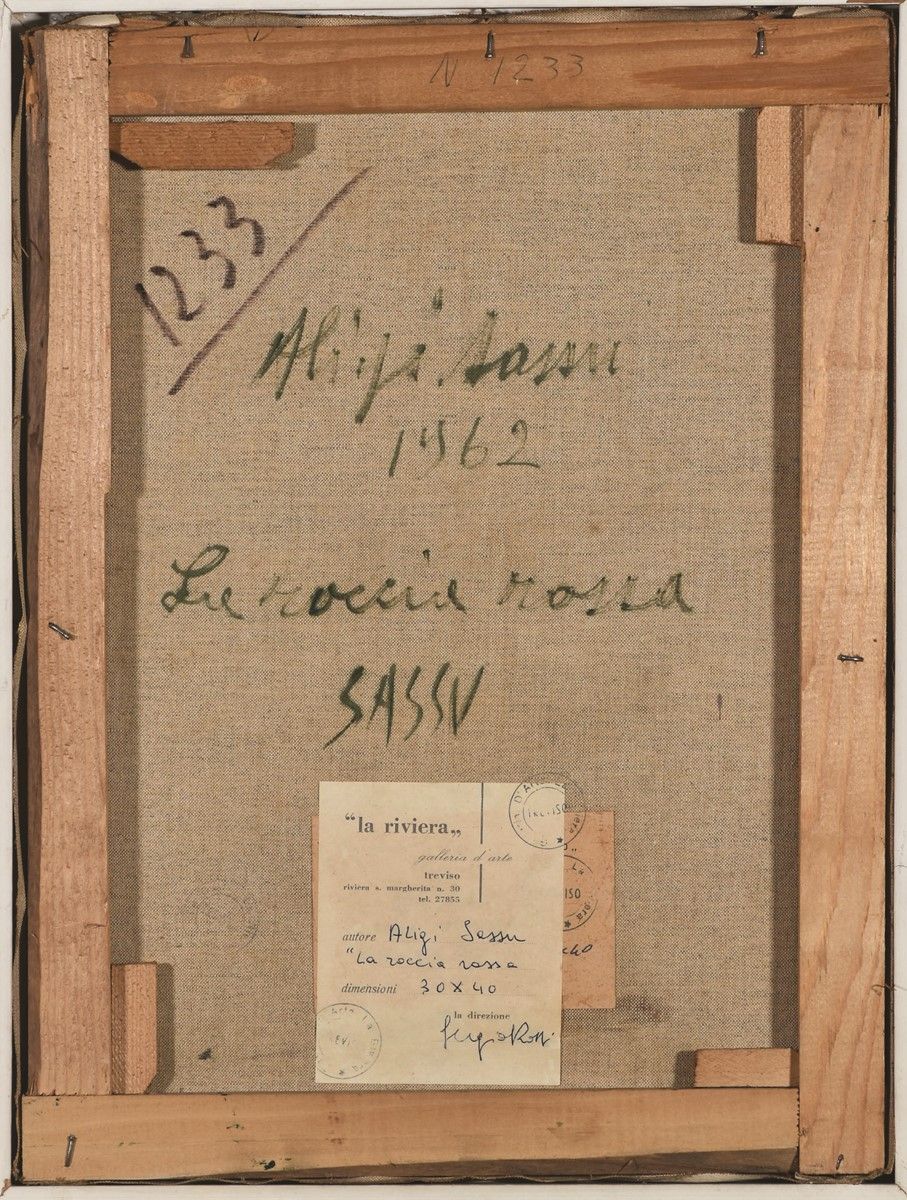 N 1233
1233
Aligi Sassu
1962
La roccia rossa
SASSU
“la riviera„
galleria d'arte
treviso
riviera s. margherita n. 30
tel. 27855
autore Aligi Sassu
"La roccia rossa
dimensioni 30X40
la direzione